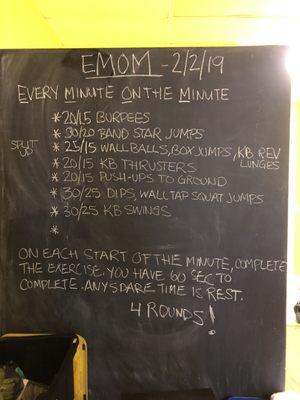 EMOM - 2/2/19
EVERY MINUTE ON THE MINUTE
* 20/15 BURPEES
* 30/20 BAND STAR JUMPS
SPLIT UP * 25/15 WALLBALLS, BOX JUMPS, KB REV LUNGES
* 20/15 KB THRUSTERS
* 20/15 PUSH-UPS TO GROUND
* 30/25 DIPS, WALL TAP SQUAT JUMPS
* 30/25 KB SWINGS
*
ON EACH START OF THE MINUTE, COMPLETE
THE EXERCISE. YOU HAVE 60 SEC TO
COMPLETE. ANY SPARE TIME IS REST.
4 ROUNDS!